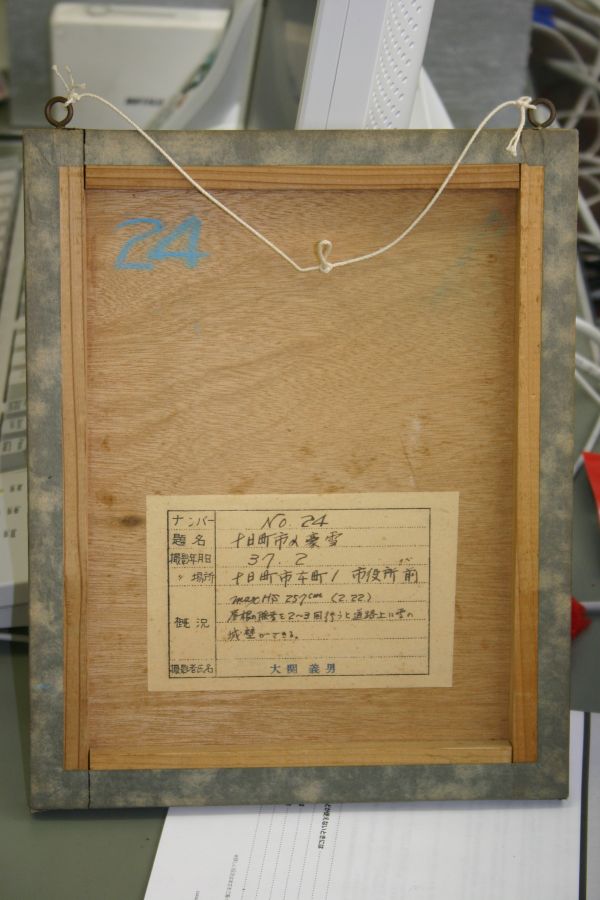 24
ナンバー No. 24
題名 十日町市の豪雪
撮影年月日 37. 2
〃 場所 十日町市本町1 市役所前
概況 max HS 257cm (2.22)
屋根の除雪を2〜3回行うと道路上に雪の
城壁ができる。
撮影者氏名 大関義男